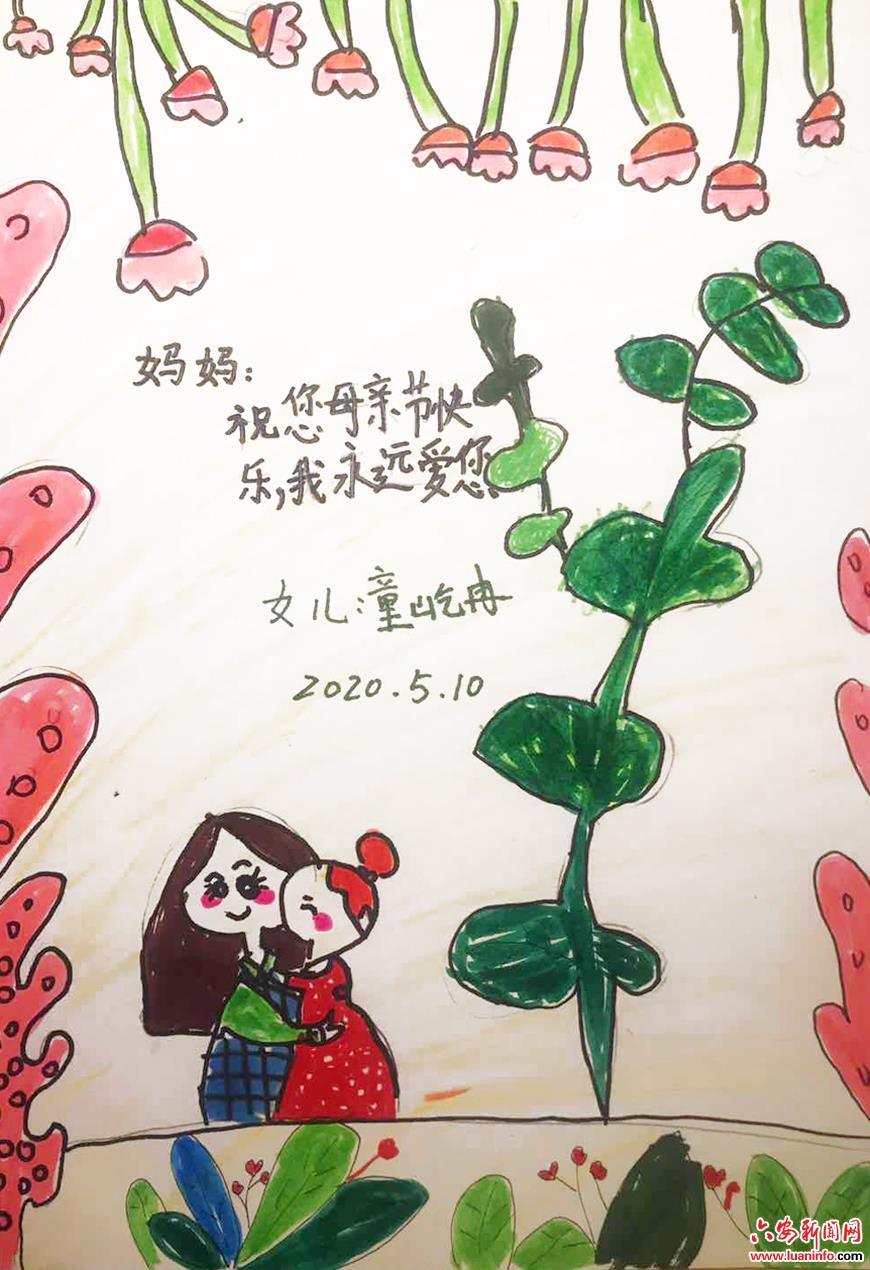 妈妈:
祝您母亲节快
乐,我永远爱您。
女儿:童屹冉
2020.5.10
六安新闻网
www.luaninfo.com